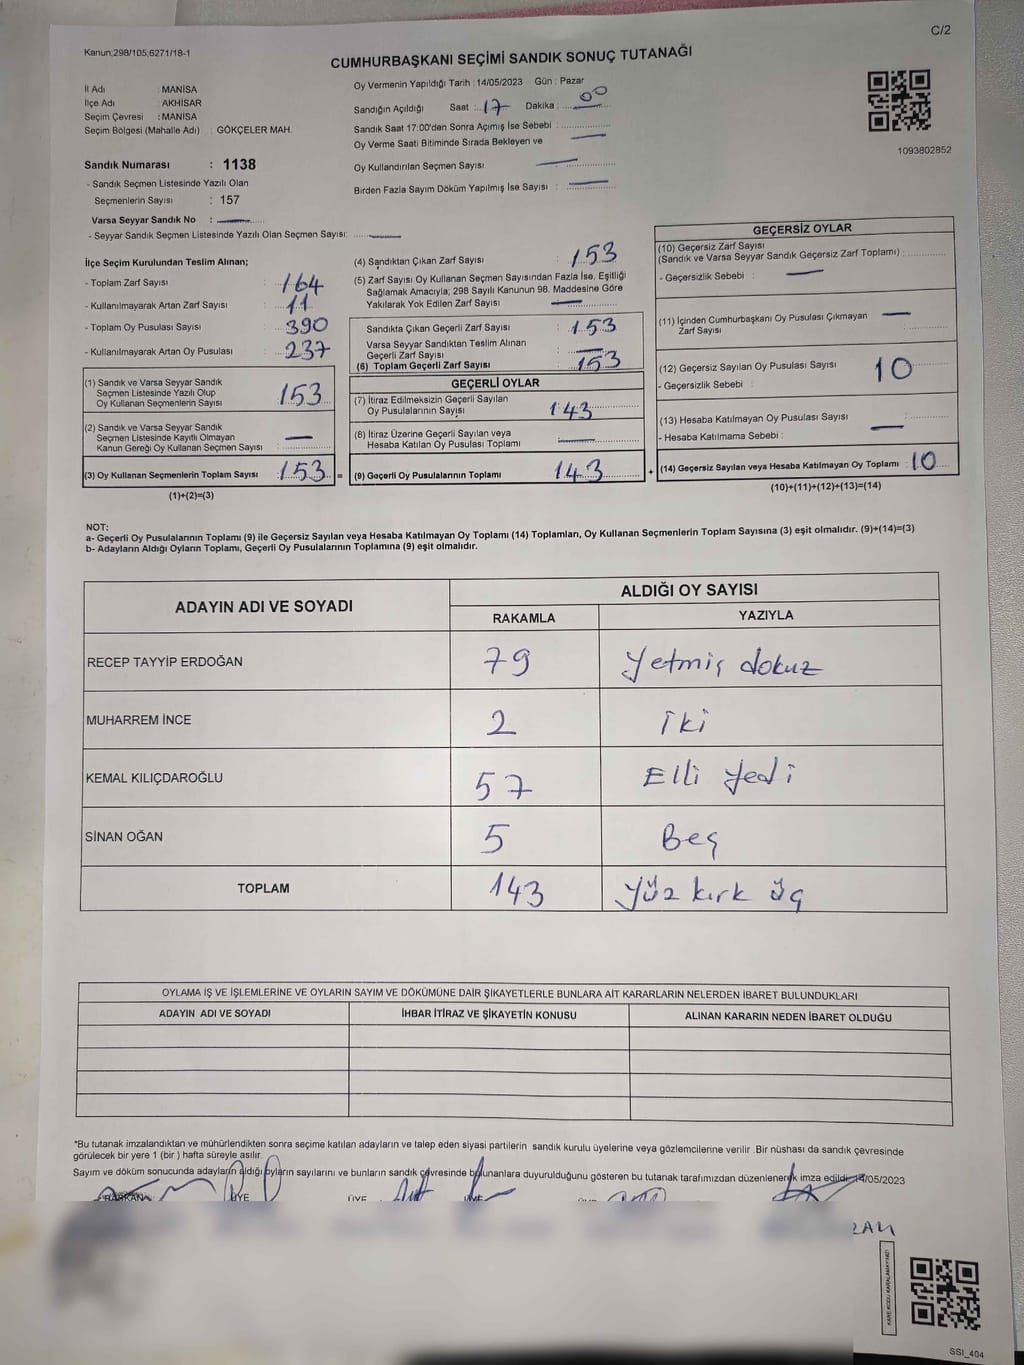 C/2
Kanun;298/105;6271/18-1
CUMHURBAŞKANI SEÇİMİ SANDIK SONUÇ TUTANAĞI
İl Adı : MANİSA
İlçe Adı : AKHİSAR
Seçim Çevresi : MANİSA
Seçim Bölgesi (Mahalle Adı) : GÖKÇELER MAH.
Sandık Numarası : 1138
- Sandık Seçmen Listesinde Yazılı Olan
Seçmenlerin Sayısı : 157
Varsa Seyyar Sandık No :
- Seyyar Sandık Seçmen Listesinde Yazılı Olan Seçmen Sayısı:
Oy Vermenin Yapıldığı Tarih : 14/05/2023 Gün : Pazar
Sandığın Açıldığı Saat : 17 Dakika : 00
Sandık Saat 17:00'den Sonra Açımış İse Sebebi :
Oy Verme Saati Bitiminde Sırada Bekleyen ve
Oy Kullandırılan Seçmen Sayısı
Birden Fazla Sayım Döküm Yapılmış İse Sayısı :
1093802852
İlçe Seçim Kurulundan Teslim Alınan;
- Toplam Zarf Sayısı : 164
- Kullanılmayarak Artan Zarf Sayısı : 11
- Toplam Oy Pusulası Sayısı : 390
- Kullanılmayarak Artan Oy Pusulası : 237
(1) Sandık ve Varsa Seyyar Sandık
Seçmen Listesinde Yazılı Olup
Oy Kullanan Seçmenlerin Sayısı : 153
(2) Sandık ve Varsa Seyyar Sandık
Seçmen Listesinde Kayıtlı Olmayan
Kanun Gereği Oy Kullanan Seçmen Sayısı : —
(3) Oy Kullanan Seçmenlerin Toplam Sayısı : 153 =
(1)+(2)=(3)
(4) Sandıktan Çıkan Zarf Sayısı : 153
(5) Zarf Sayısı Oy Kullanan Seçmen Sayısından Fazla İse, Eşitliği
Sağlamak Amacıyla; 298 Sayılı Kanunun 98. Maddesine Göre
Yakılarak Yok Edilen Zarf Sayısı : —
Sandıkta Çıkan Geçerli Zarf Sayısı : 153
Varsa Seyyar Sandıktan Teslim Alınan
Geçerli Zarf Sayısı : —
(6) Toplam Geçerli Zarf Sayısı : 153
GEÇERLİ OYLAR
(7) İtiraz Edilmeksizin Geçerli Sayılan
Oy Pusulalarının Sayısı : 143
(8) İtiraz Üzerine Geçerli Sayılan veya
Hesaba Katılan Oy Pusulası Toplamı : —
(9) Geçerli Oy Pusulalarının Toplamı : 143 +
GEÇERSİZ OYLAR
(10) Geçersiz Zarf Sayısı
(Sandık ve Varsa Seyyar Sandık Geçersiz Zarf Toplamı) :
- Geçersizlik Sebebi : —
(11) İçinden Cumhurbaşkanı Oy Pusulası Çıkmayan
Zarf Sayısı —
(12) Geçersiz Sayılan Oy Pusulası Sayısı : 10
- Geçersizlik Sebebi :
(13) Hesaba Katılmayan Oy Pusulası Sayısı :
- Hesaba Katılmama Sebebi : —
(14) Geçersiz Sayılan veya Hesaba Katılmayan Oy Toplamı : 10
(10)+(11)+(12)+(13)=(14)
NOT:
a- Geçerli Oy Pusulalarının Toplamı (9) ile Geçersiz Sayılan veya Hesaba Katılmayan Oy Toplamı (14) Toplamları, Oy Kullanan Seçmenlerin Toplam Sayısına (3) eşit olmalıdır. (9)+(14)=(3)
b- Adayların Aldığı Oyların Toplamı, Geçerli Oy Pusulalarının Toplamına (9) eşit olmalıdır.
ADAYIN ADI VE SOYADI
ALDIĞI OY SAYISI
RAKAMLA YAZIYLA
RECEP TAYYİP ERDOĞAN 79 Yetmiş dokuz
MUHARREM İNCE 2 İki
KEMAL KILIÇDAROĞLU 57 Elli Yedi
SİNAN OĞAN 5 Beş
TOPLAM 143 Yüz kırk üç
OYLAMA İŞ VE İŞLEMLERİNE VE OYLARIN SAYIM VE DÖKÜMÜNE DAİR ŞİKAYETLERLE BUNLARA AİT KARARLARIN NELERDEN İBARET BULUNDUKLARI
ADAYIN ADI VE SOYADI İHBAR İTİRAZ VE ŞİKAYETİN KONUSU ALINAN KARARIN NEDEN İBARET OLDUĞU
*Bu tutanak imzalandıktan ve mühürlendikten sonra seçime katılan adayların ve talep eden siyasi partilerin sandık kurulu üyelerine veya gözlemcilerine verilir .Bir nüshası da sandık çevresinde
görülecek bir yere 1 (bir ) hafta süreyle asılır.
Sayım ve döküm sonucunda adayların aldığı oyların sayılarını ve bunların sandık çevresinde bulunanlara duyurulduğunu gösteren bu tutanak tarafımızdan düzenlenerek imza edildi. 14/05/2023
BAŞKAN ÜYE ÜYE ÜYE
SSI_404